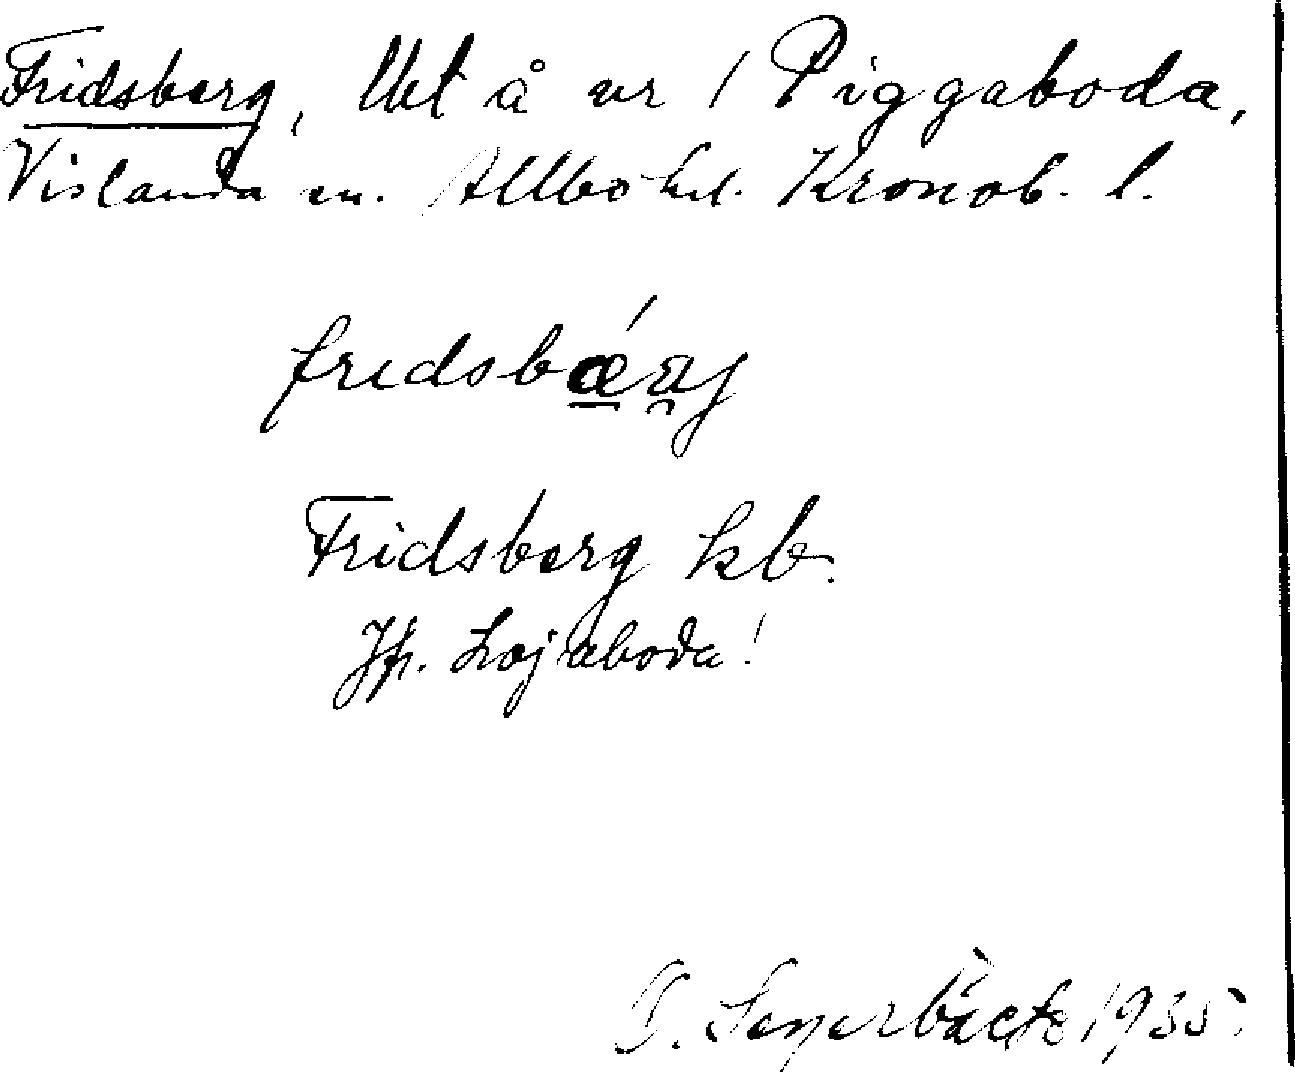 Fridsberg, lht å nr 1 Piggaboda,
Vislanda sn. Allbo hd. Kronob. l.
fridsbǽrj
Fridsberg kb.
Jfr. Lojtaboda!
1935.